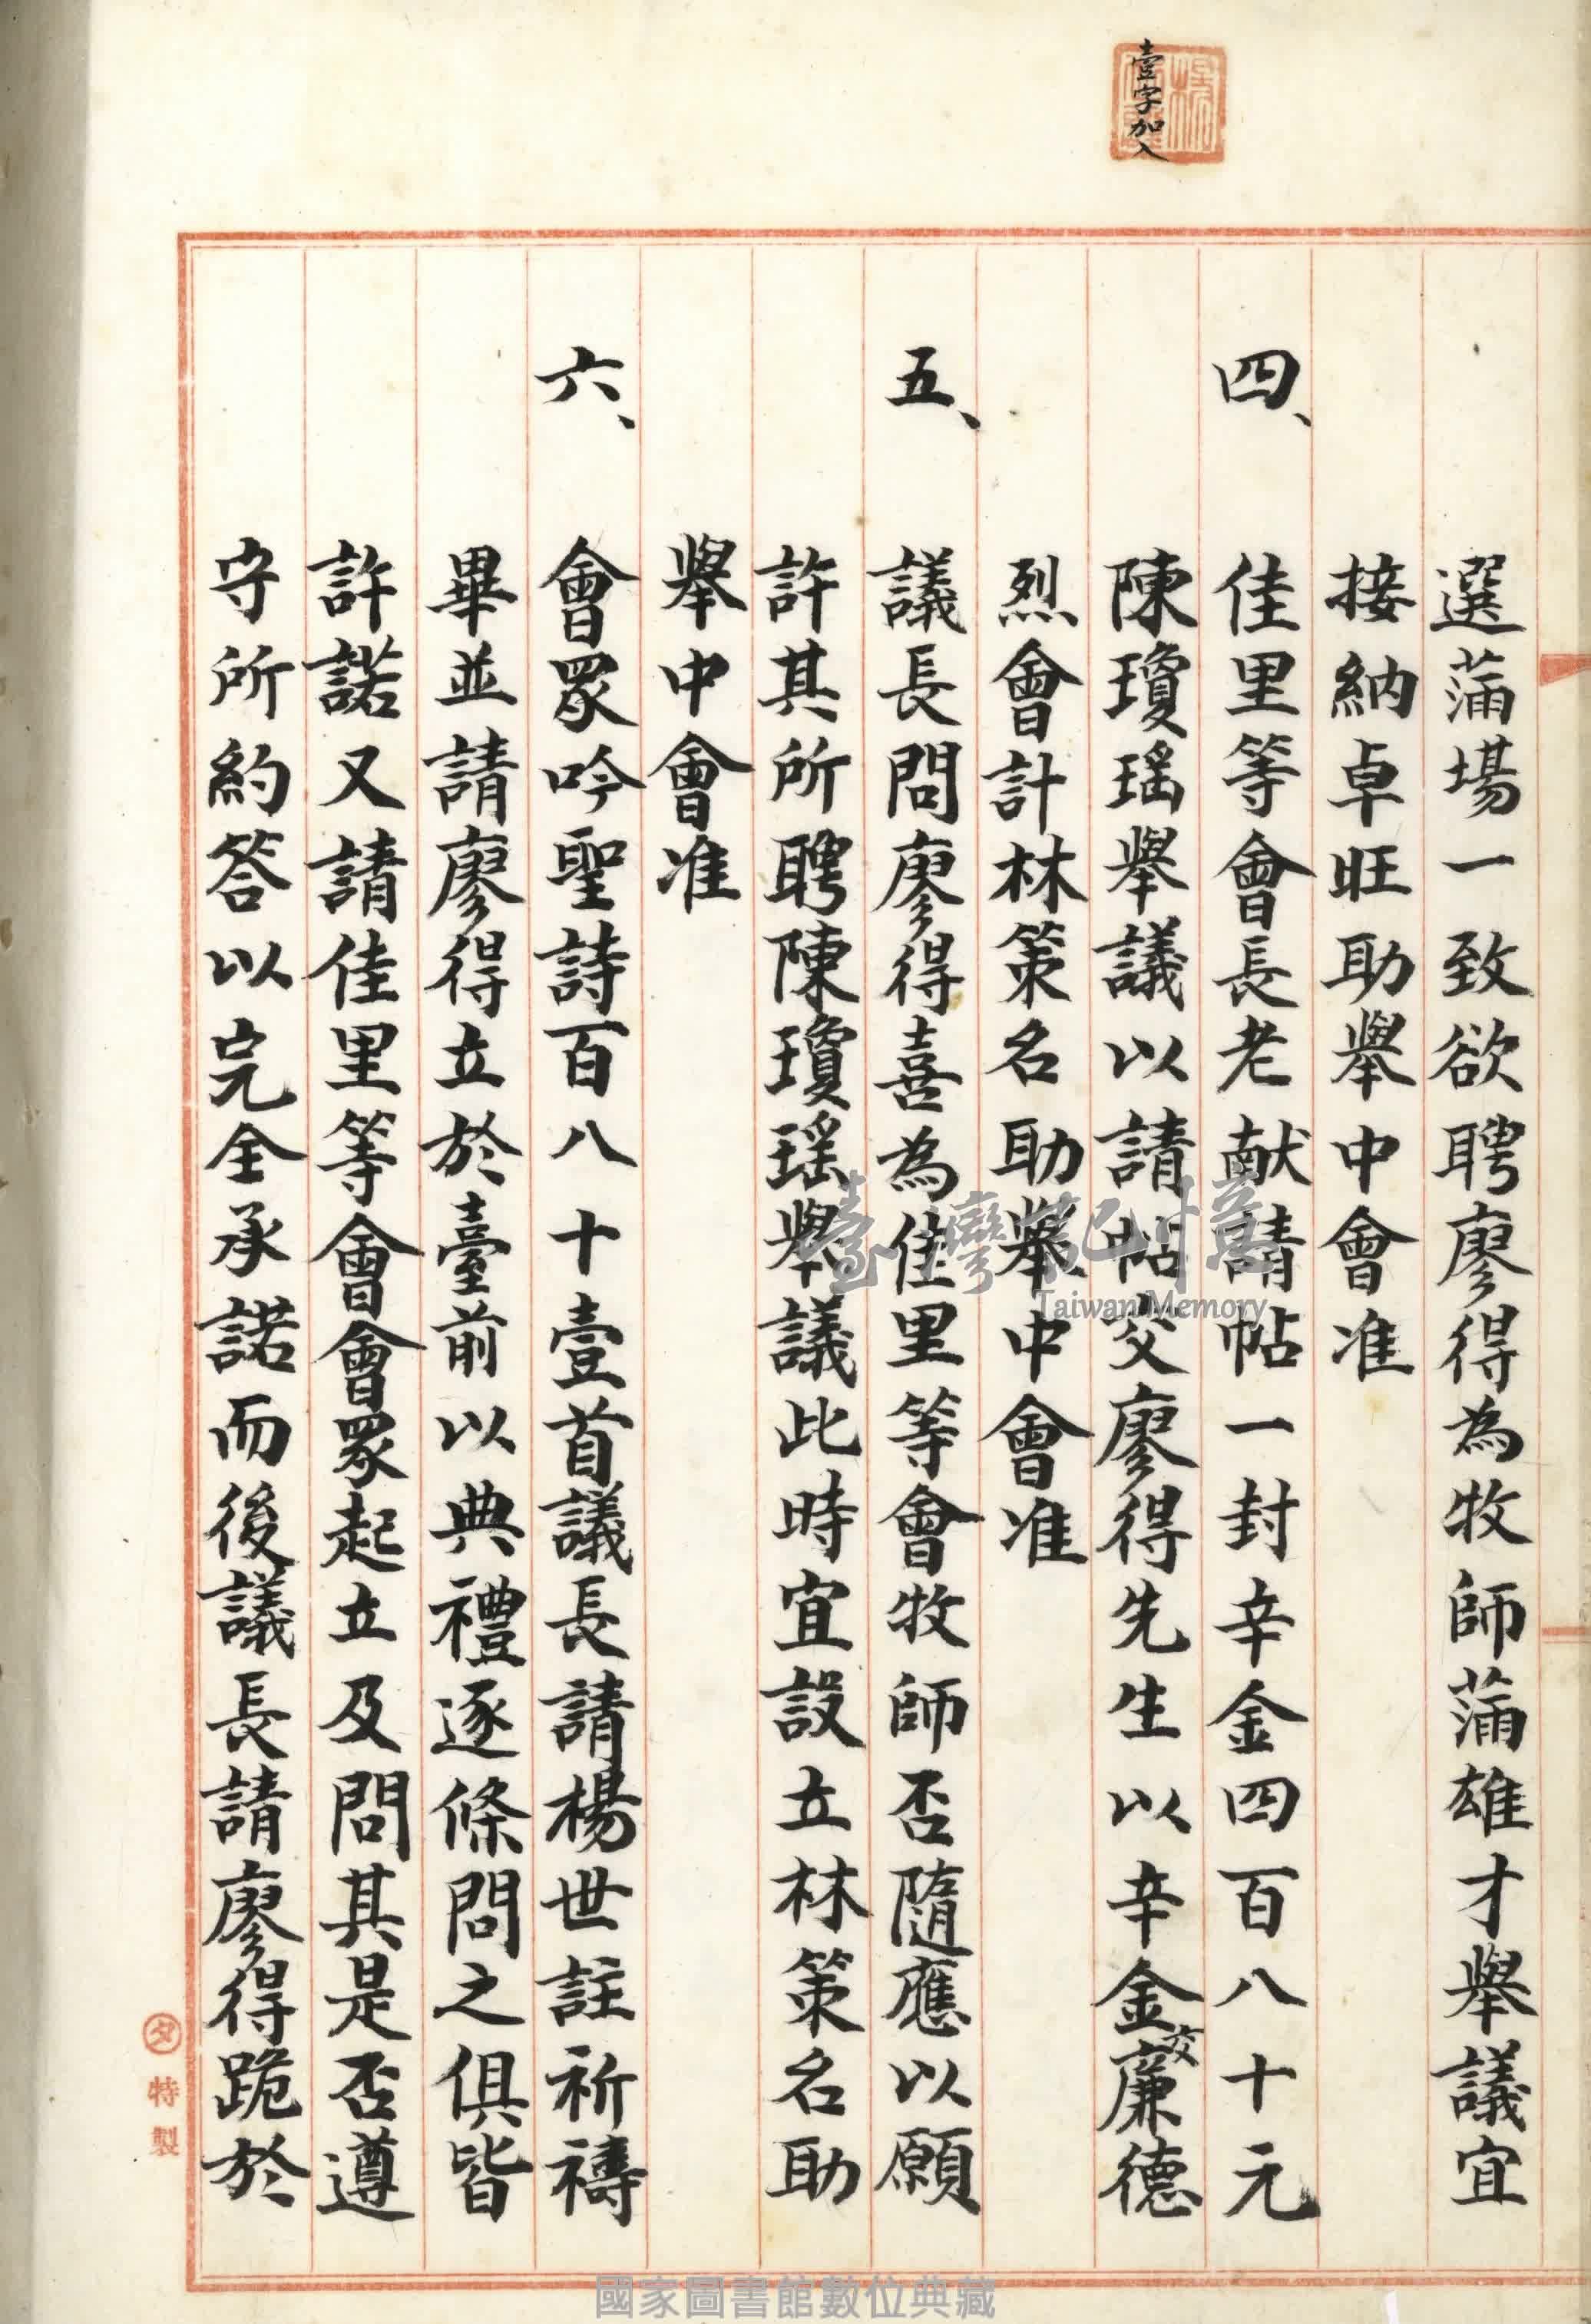 壹字加入
選蒲場一致欲聘廖得為牧師蒲雄才舉議宜
接納卓旺助舉中會准
四、佳里等會長老献請帖一封辛金四百八十元
陳瓊瑤舉議以請帖交廖得先生以辛金交廉德
烈會計林策名助舉中會准
五、議長問廖得喜為佳里等會牧師否隨應以願
許其所聘陳瓊瑤舉議此時宜設立林策名助
舉中會准
六、會眾吟聖詩百八十壹首議長請楊世註祈禱
畢並請廖得立於臺前以典禮逐條問之俱皆
許諾又請佳里等會會眾起立及問其是否遵
守所約答以完全承諾而後議長請廖得跪於
特製
臺灣記憶
Taiwan Memory
國家圖書館數位典藏